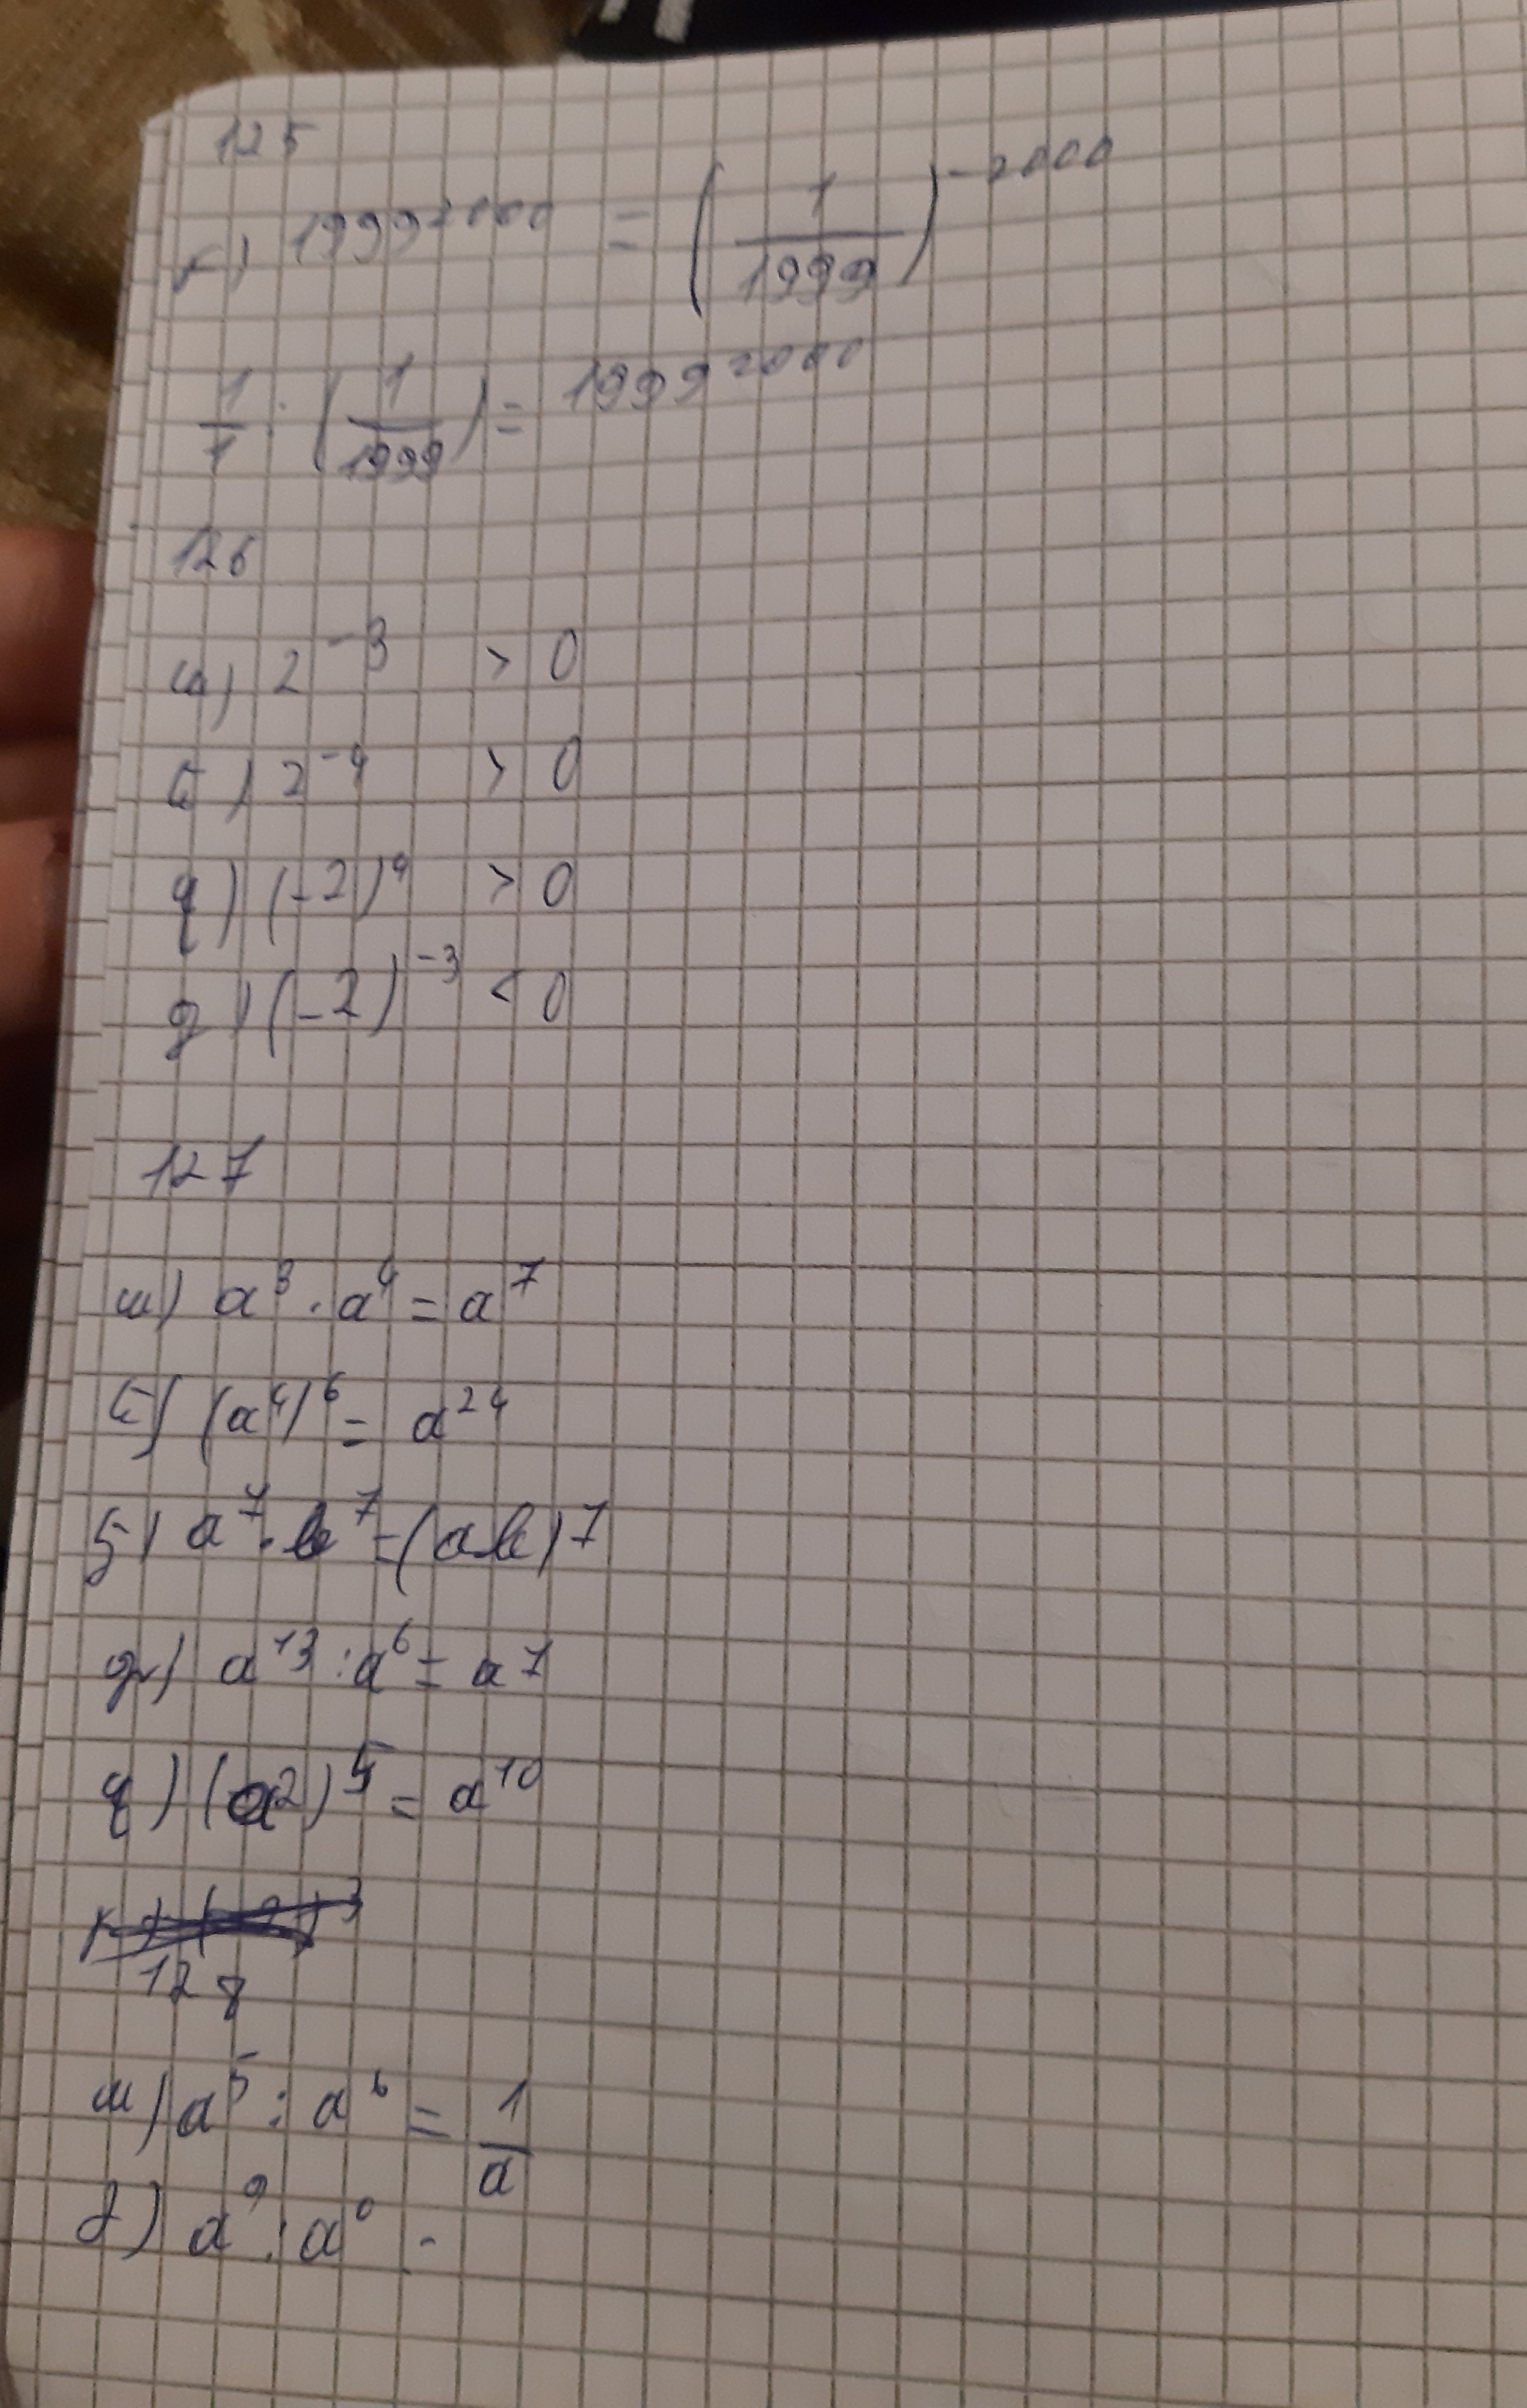 125
г) 1999²⁰⁰⁰ = (1/1999)⁻²⁰⁰⁰
1/1 : (1/1999) = 1999²⁰⁰⁰
126
ա) 2⁻³ > 0
բ) 2⁻⁴ > 0
գ) (-2)⁴ > 0
դ) (-2)⁻³ < 0
127
ա) a³ · a⁴ = a⁷
(a⁴)⁶ = a²⁴
a⁷ · b⁷ = (ab)⁷
դ) a¹³ : a⁶ = a⁷
զ) (a2)⁵ = a¹⁰
128
ա) a⁵ : a⁶ = 1/a
a⁹ : a⁰ -